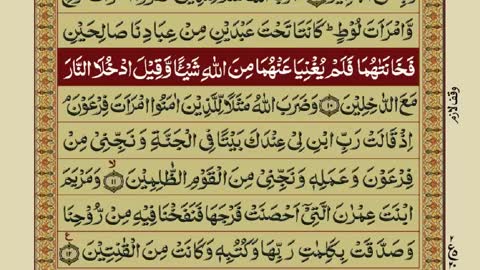 وَّامْرَاَتَ لُوْطٍ ؕ كَانَتَا تَحْتَ عَبْدَيْنِ مِنْ عِبَادِنَا صَالِحَيْنِ
فَخَانَتٰهُمَا فَلَمْ يُغْنِيَا عَنْهُمَا مِنَ اللّٰهِ شَيْـًٔا وَّقِيْلَ ادْخُلَا النَّارَ
مَعَ الدّٰخِلِيْنَ ﴿۱۰﴾ وَضَرَبَ اللّٰهُ مَثَلًا لِّلَّذِيْنَ اٰمَنُوا امْرَاَتَ فِرْعَوْنَ ۘ
اِذْ قَالَتْ رَبِّ ابْنِ لِيْ عِنْدَكَ بَيْتًا فِي الْجَنَّةِ وَنَجِّنِيْ مِنْ
فِرْعَوْنَ وَعَمَلِهٖ وَنَجِّنِيْ مِنَ الْقَوْمِ الظّٰلِمِيْنَ ﴿۱۱﴾ ۙ وَمَرْيَمَ
ابْنَتَ عِمْرٰنَ الَّتِيْۤ اَحْصَنَتْ فَرْجَهَا فَنَفَخْنَا فِيْهِ مِنْ رُّوْحِنَا
وَصَدَّقَتْ بِكَلِمٰتِ رَبِّهَا وَكُتُبِهٖ وَكَانَتْ مِنَ الْقٰنِتِيْنَ ﴿۱۲﴾
وقف لازم